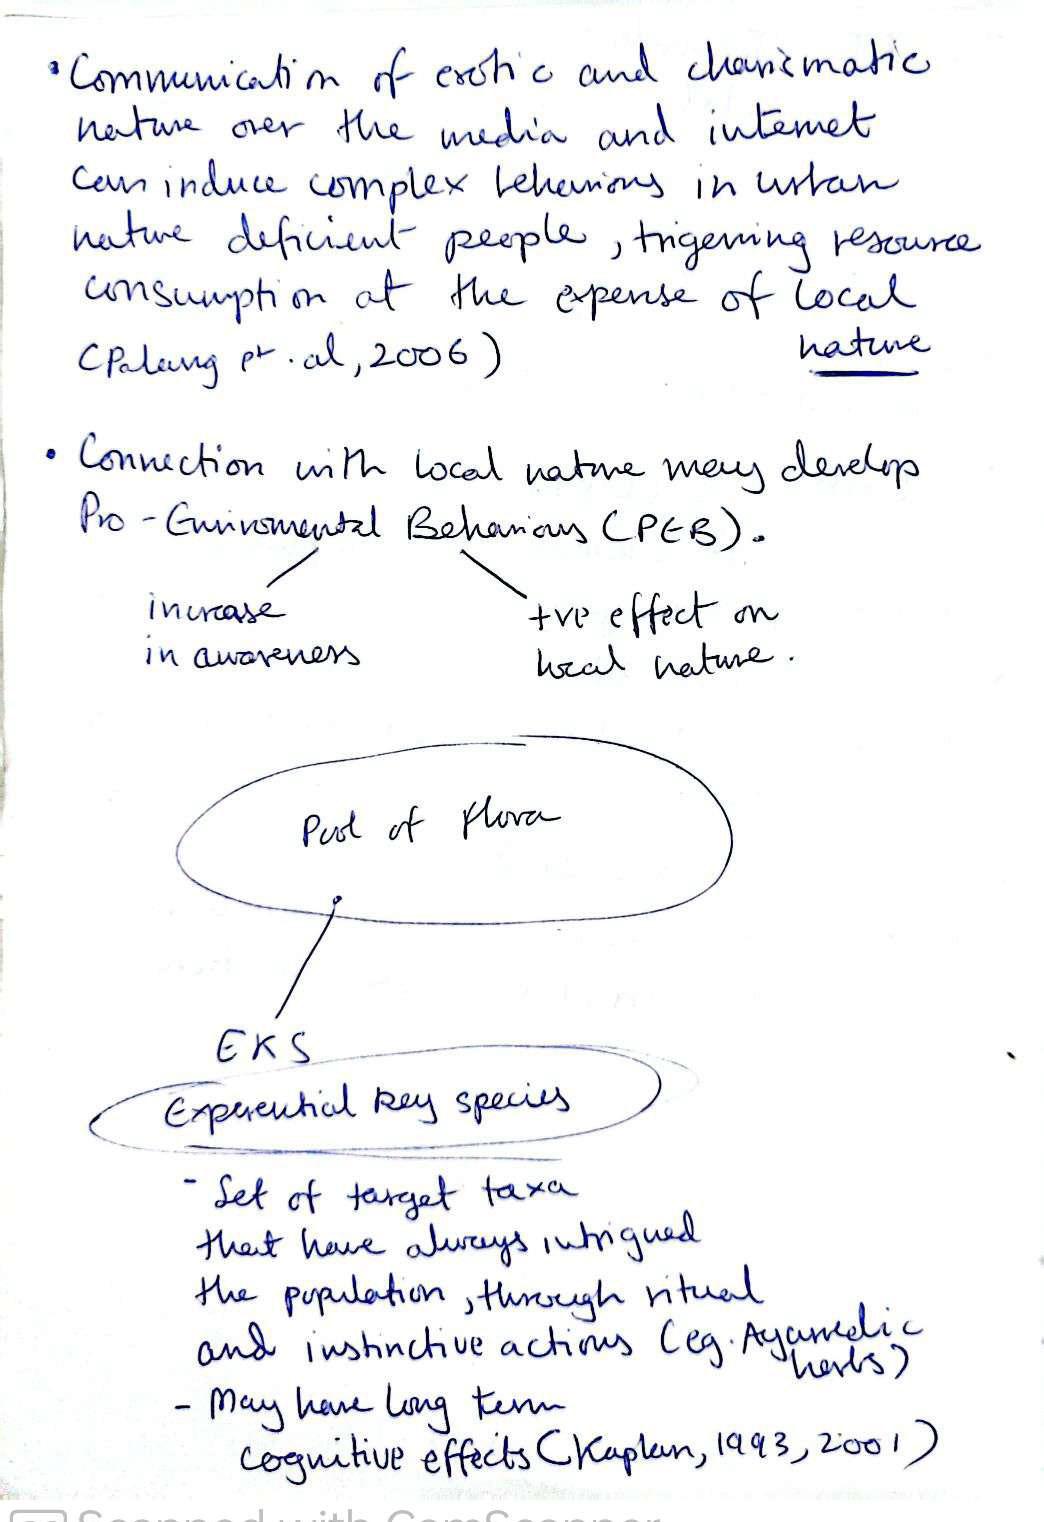 • Communication of exotic and charismatic
nature over the media and internet
can induce complex behaviours in urban
nature deficient people, trigerring resource
consumption at the expense of local
nature
(Palang et.al, 2006)
• Connection with local nature may develop
Pro-Enviromental Behaviours (PEB).
increase
in awareness
+ve effect on
local nature.
Pool of flora
EKS
Experiential key species
- Set of target taxa
that have always intrigued
the population, through ritual
and instinctive actions (eg. Ayurvedic
herbs)
- May have long term
cognitive effects (Kaplan, 1993, 2001)